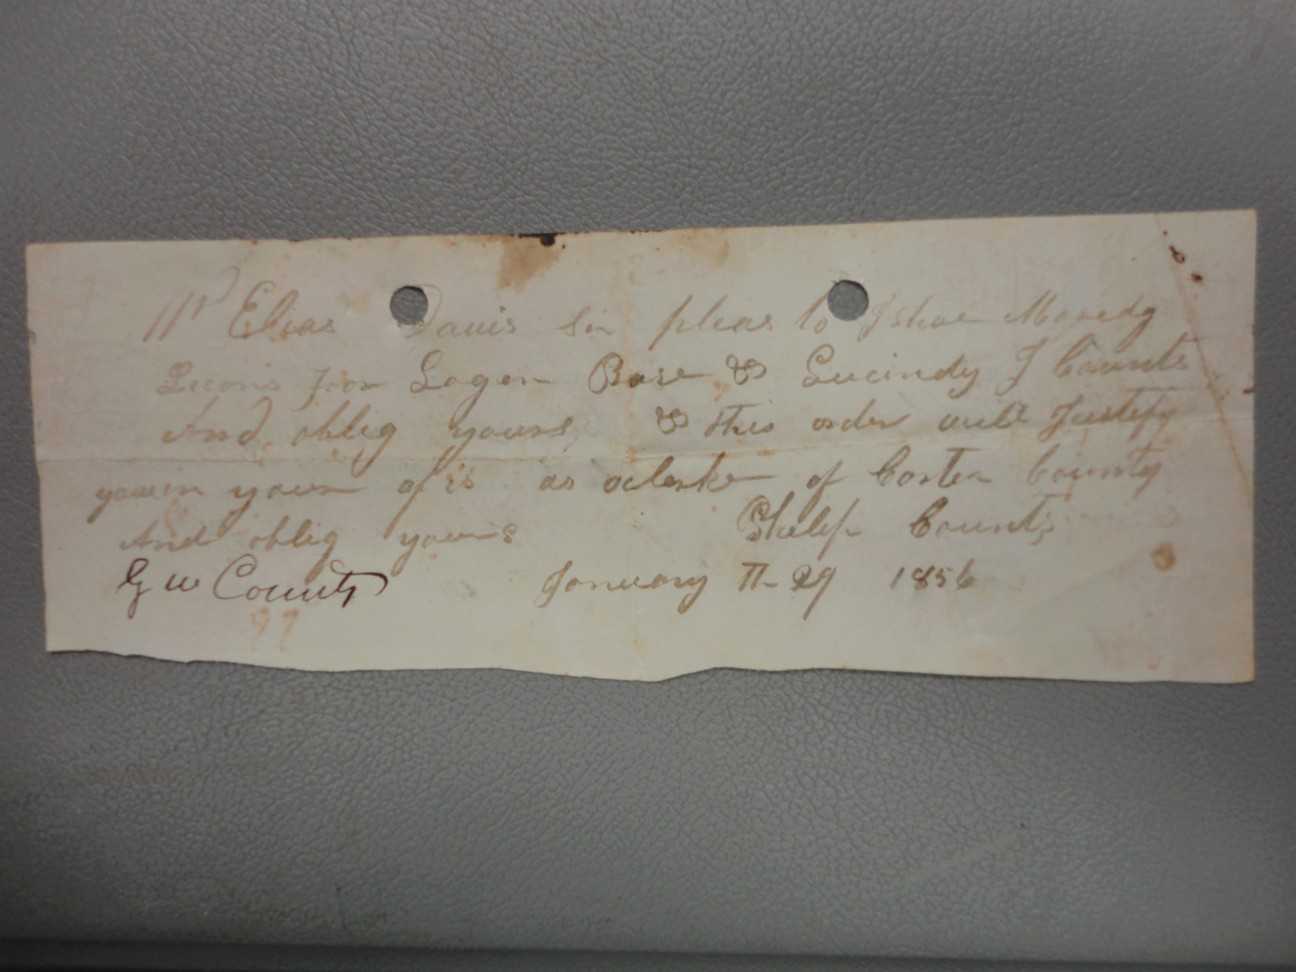 Mr Elias Davis Sir pleas to Ishue Maredg
Licons for Logen Base & Lucindy J Counts
And oblig yours, & this order will Justify
you in your ofis as a clerke of Carter County
And oblig yours Philip Counts
G W Counts January 29 1856
97